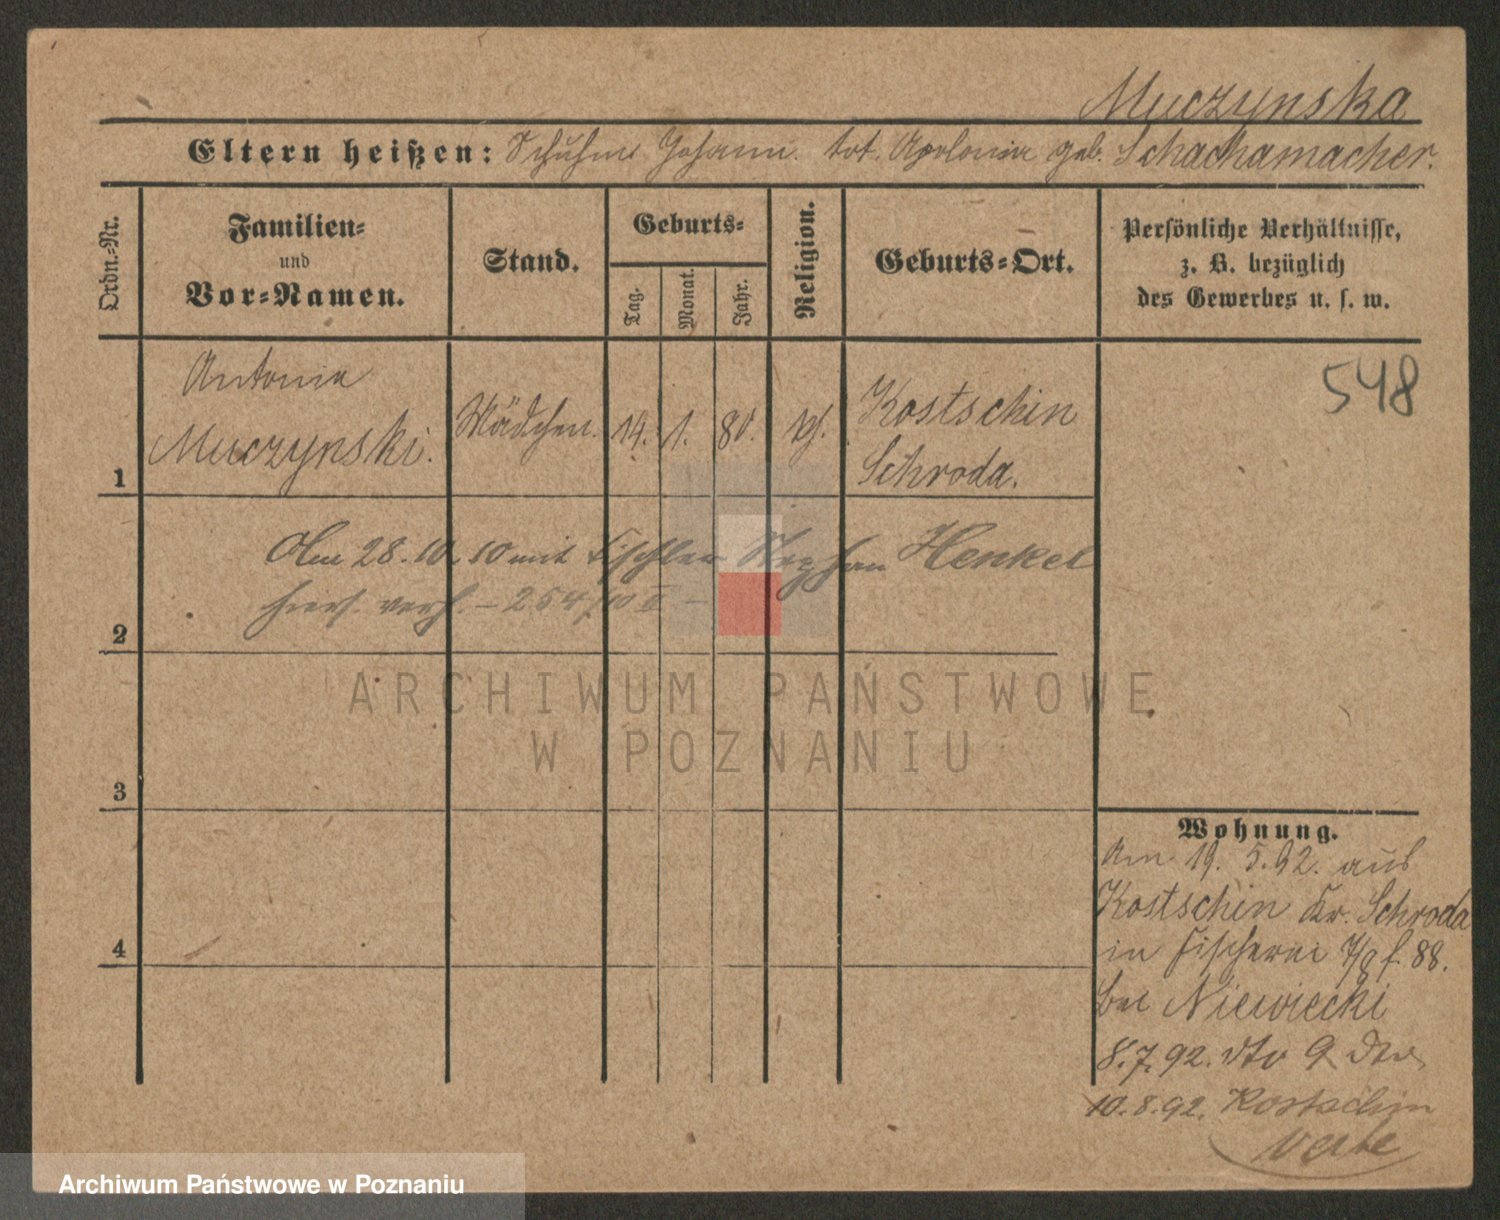 Muczynska
Eltern heißen: Schuhm. Johann. tot. Apolonia geb. Schachamacher.
Ordn.-Nr.
Familien-
und
Vor-Namen.
Stand.
Geburts-
Tag.
Monat.
Jahr.
Religion.
Geburts-Ort.
Persönliche Verhältnisse,
z. B. bezüglich
des Gewerbes u. s. w.
548
1
Antonia
Muczynski.
Mädchen.
14.
1.
80.
kth.
Kostschin
Schroda.
2
Am 28.10.10 mit Tischler Stephan Henkel
hiers. verh. - 254/10 II -
3
4
Wohnung.
Am 19. 5. 92. aus
Kostschin Kr. Schroda
in Fischerei 7/8 f. 88.
bei Niewiecki
8.7.92. dto 9
10.8.92. Kostschin
verte
ARCHIWUM PAŃSTWOWE
W POZNANIU
Archiwum Państwowe w Poznaniu